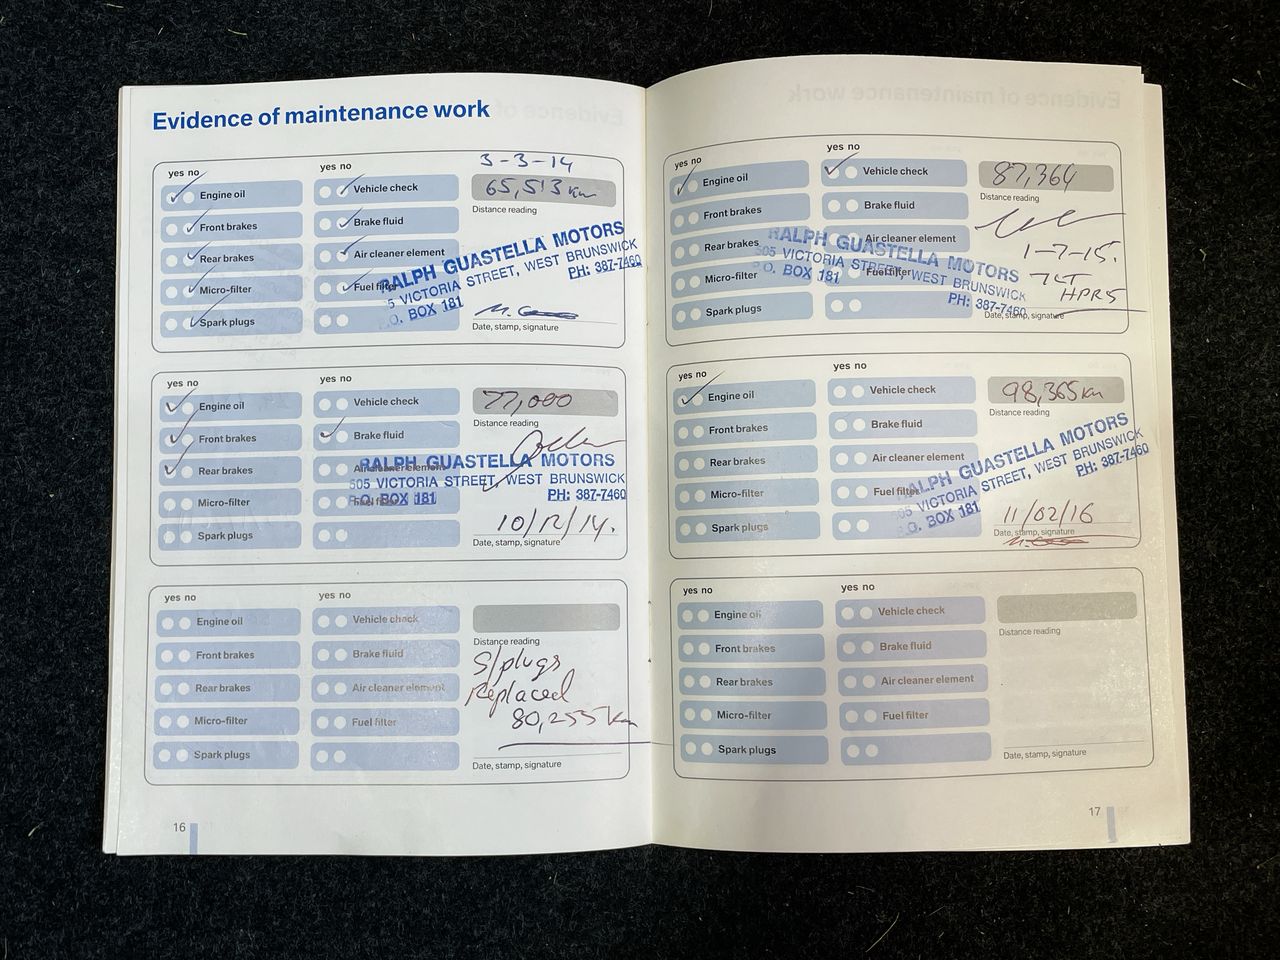 Evidence of maintenance work
yes no
yes no
3-3-14
Engine oil
Vehicle check
65,513 km
Distance reading
Front brakes
Brake fluid
Rear brakes
Air cleaner element
Micro-filter
Fuel filter
Spark plugs
RALPH GUASTELLA MOTORS
5 VICTORIA STREET, WEST BRUNSWICK
P.O. BOX 181
PH: 387-7460
Date, stamp, signature
yes no
yes no
Engine oil
Vehicle check
77,000
Distance reading
Front brakes
Brake fluid
Rear brakes
Air cleaner element
Micro-filter
Fuel filter
Spark plugs
RALPH GUASTELLA MOTORS
505 VICTORIA STREET, WEST BRUNSWICK
P.O. BOX 181
PH: 387-7460
10/12/14.
Date, stamp, signature
yes no
yes no
Engine oil
Vehicle check
Distance reading
Front brakes
Brake fluid
Rear brakes
Air cleaner element
Micro-filter
Fuel filter
Spark plugs
S/plugs
Replaced
80,255 km
Date, stamp, signature
16
yes no
yes no
Engine oil
Vehicle check
87,364
Distance reading
Front brakes
Brake fluid
Rear brakes
Air cleaner element
Micro-filter
Fuel filter
Spark plugs
RALPH GUASTELLA MOTORS
505 VICTORIA STREET, WEST BRUNSWICK
P.O. BOX 181
PH: 387-7460
1-7-15.
7LT
HPR5
Date, stamp, signature
yes no
yes no
Engine oil
Vehicle check
98,365 km
Distance reading
Front brakes
Brake fluid
Rear brakes
Air cleaner element
Micro-filter
Fuel filter
Spark plugs
RALPH GUASTELLA MOTORS
505 VICTORIA STREET, WEST BRUNSWICK
P.O. BOX 181
PH: 387-7460
11/02/16
Date, stamp, signature
yes no
yes no
Engine oil
Vehicle check
Distance reading
Front brakes
Brake fluid
Rear brakes
Air cleaner element
Micro-filter
Fuel filter
Spark plugs
Date, stamp, signature
17